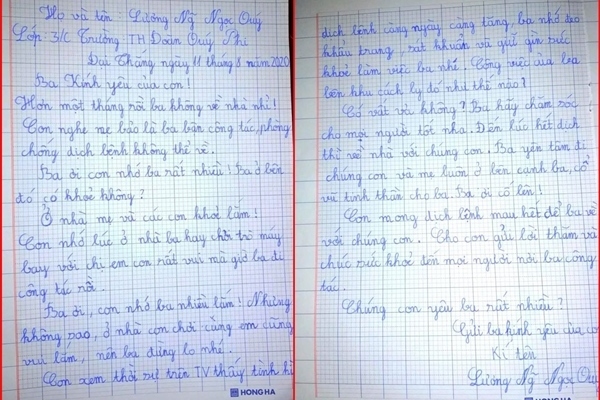 Họ và tên Lương Ng̃ Ngọc Quý
Lớp: 3/C Trường TH Đoàn Quý Phi
Đại Thắng ngày 11 tháng 8 năm 2020
Ba Kính yêu của con!
Hơn một tháng rồi ba không về nhà nhỉ!
Con nghe mẹ bảo là ba bận công tác, phòng
chống dịch bệnh không thể về.
Ba ơi con nhớ ba rất nhiều! Ba ở bên
đó có khoẻ không?
Ở nhà mẹ và các con khoẻ lắm!
Con nhớ lúc ở nhà ba hay chơi trò máy
bay với chị em con rất vui mà giờ ba đi
công tác rồi.
Ba ơi, con nhớ ba nhiều lắm! Nhưng
không sao, ở nhà con chơi cùng em cũng
vui lắm, nên ba đừng lo nhé.
Con xem thời sự trên TV thấy tình hì
HONG HA
dịch bệnh càng ngày càng tăng, ba nhớ đeo
khẩu trang, sát khuẩn và giữ gìn sức
khoẻ làm việc ba nhé. Công việc của ba
bên khu cách ly đó như thế nào?
Có vất vả không? Ba hãy chăm sóc
cho mọi người tốt nha. Đến lúc hết dịch
thì về nhà với chúng con. Ba yên tâm đi
chúng con và mẹ luôn ở bên cạnh ba, cổ
vũ tinh thần cho ba. Ba ơi cố lên!
Con mong dịch bệnh mau hết để ba về
với chúng con. Cho con gửi lời thăm và
chúc sức khoẻ đến mọi người nơi ba công
tác.
Chúng con yêu ba rất nhiều?
Gửi ba kính yêu của co
Kí tên
Lương Ng̃ Ngọc Quý
HONG HA